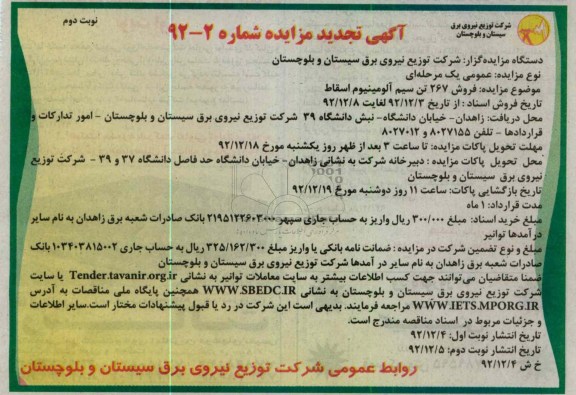 نوبت دوم
شرکت توزیع نیروی برق
سیستان و بلوچستان
آگهی تجدید مزایده شماره ۲-۹۲
دستگاه مزایده‌گزار: شرکت توزیع نیروی برق سیستان و بلوچستان
نوع مزایده: عمومی یک مرحله‌ای
موضوع مزایده: فروش ۲۶۷ تن سیم آلومینیوم اسقاط
تاریخ فروش اسناد : از تاریخ ۹۲/۱۲/۳ لغایت ۹۲/۱۲/۸
محل دریافت: زاهدان- خیابان دانشگاه- نبش دانشگاه ۳۹ شرکت توزیع نیروی برق سیستان و بلوچستان - امور تدارکات و
قراردادها - تلفن ۸۰۲۷۱۵۵ و ۸۰۲۷۰۱۲
مهلت تحویل پاکات مزایده: تا ساعت ۳ بعد از ظهر روز یکشنبه مورخ ۹۲/۱۲/۱۸
محل تحویل پاکات مزایده : دبیرخانه شرکت به نشانی زاهدان- خیابان دانشگاه حد فاصل دانشگاه ۳۷ و ۳۹ - شرکت توزیع
نیروی برق سیستان و بلوچستان
تاریخ بازگشایی پاکات: ساعت ۱۱ روز دوشنبه مورخ ۹۲/۱۲/۱۹
مدت قرارداد: ۱ ماه
مبلغ خرید اسناد: مبلغ ۳۰۰/۰۰۰ ریال واریز به حساب جاری سپهر ۲۱۹۵۱۲۲۶۰۳۰۰۰ بانک صادرات شعبه برق زاهدان به نام سایر
درآمدها توانیر
مبلغ و نوع تضمین شرکت در مزایده : ضمانت نامه بانکی یا واریز مبلغ ۳۲۵/۱۶۲/۳۰۰ ریال به حساب جاری ۱۰۳۴۰۳۸۱۵۰۰۲ بانک
صادرات شعبه برق زاهدان به نام سایر در آمدها شرکت توزیع نیروی برق سیستان و بلوچستان
ضمنا متقاضیان می‌توانند جهت کسب اطلاعات بیشتر به سایت معاملات توانیر به نشانی Tender.tavanir.org.ir یا سایت
شرکت توزیع نیروی برق سیستان و بلوچستان به نشانی WWW.SBEDC.IR همچنین پایگاه ملی مناقصات به آدرس
WWW.IETS.MPORG.IR مراجعه فرمایند. بدیهی است این شرکت در رد یا قبول پیشنهادات مختار است.سایر اطلاعات
و جزئیات مربوط در اسناد مناقصه مندرج است.
تاریخ انتشار نوبت اول: ۹۲/۱۲/۴
تاریخ انتشار نوبت دوم: ۹۲/۱۲/۵
خ ش ۹۲/۱۲/۴
روابط عمومی شرکت توزیع نیروی برق سیستان و بلوچستان